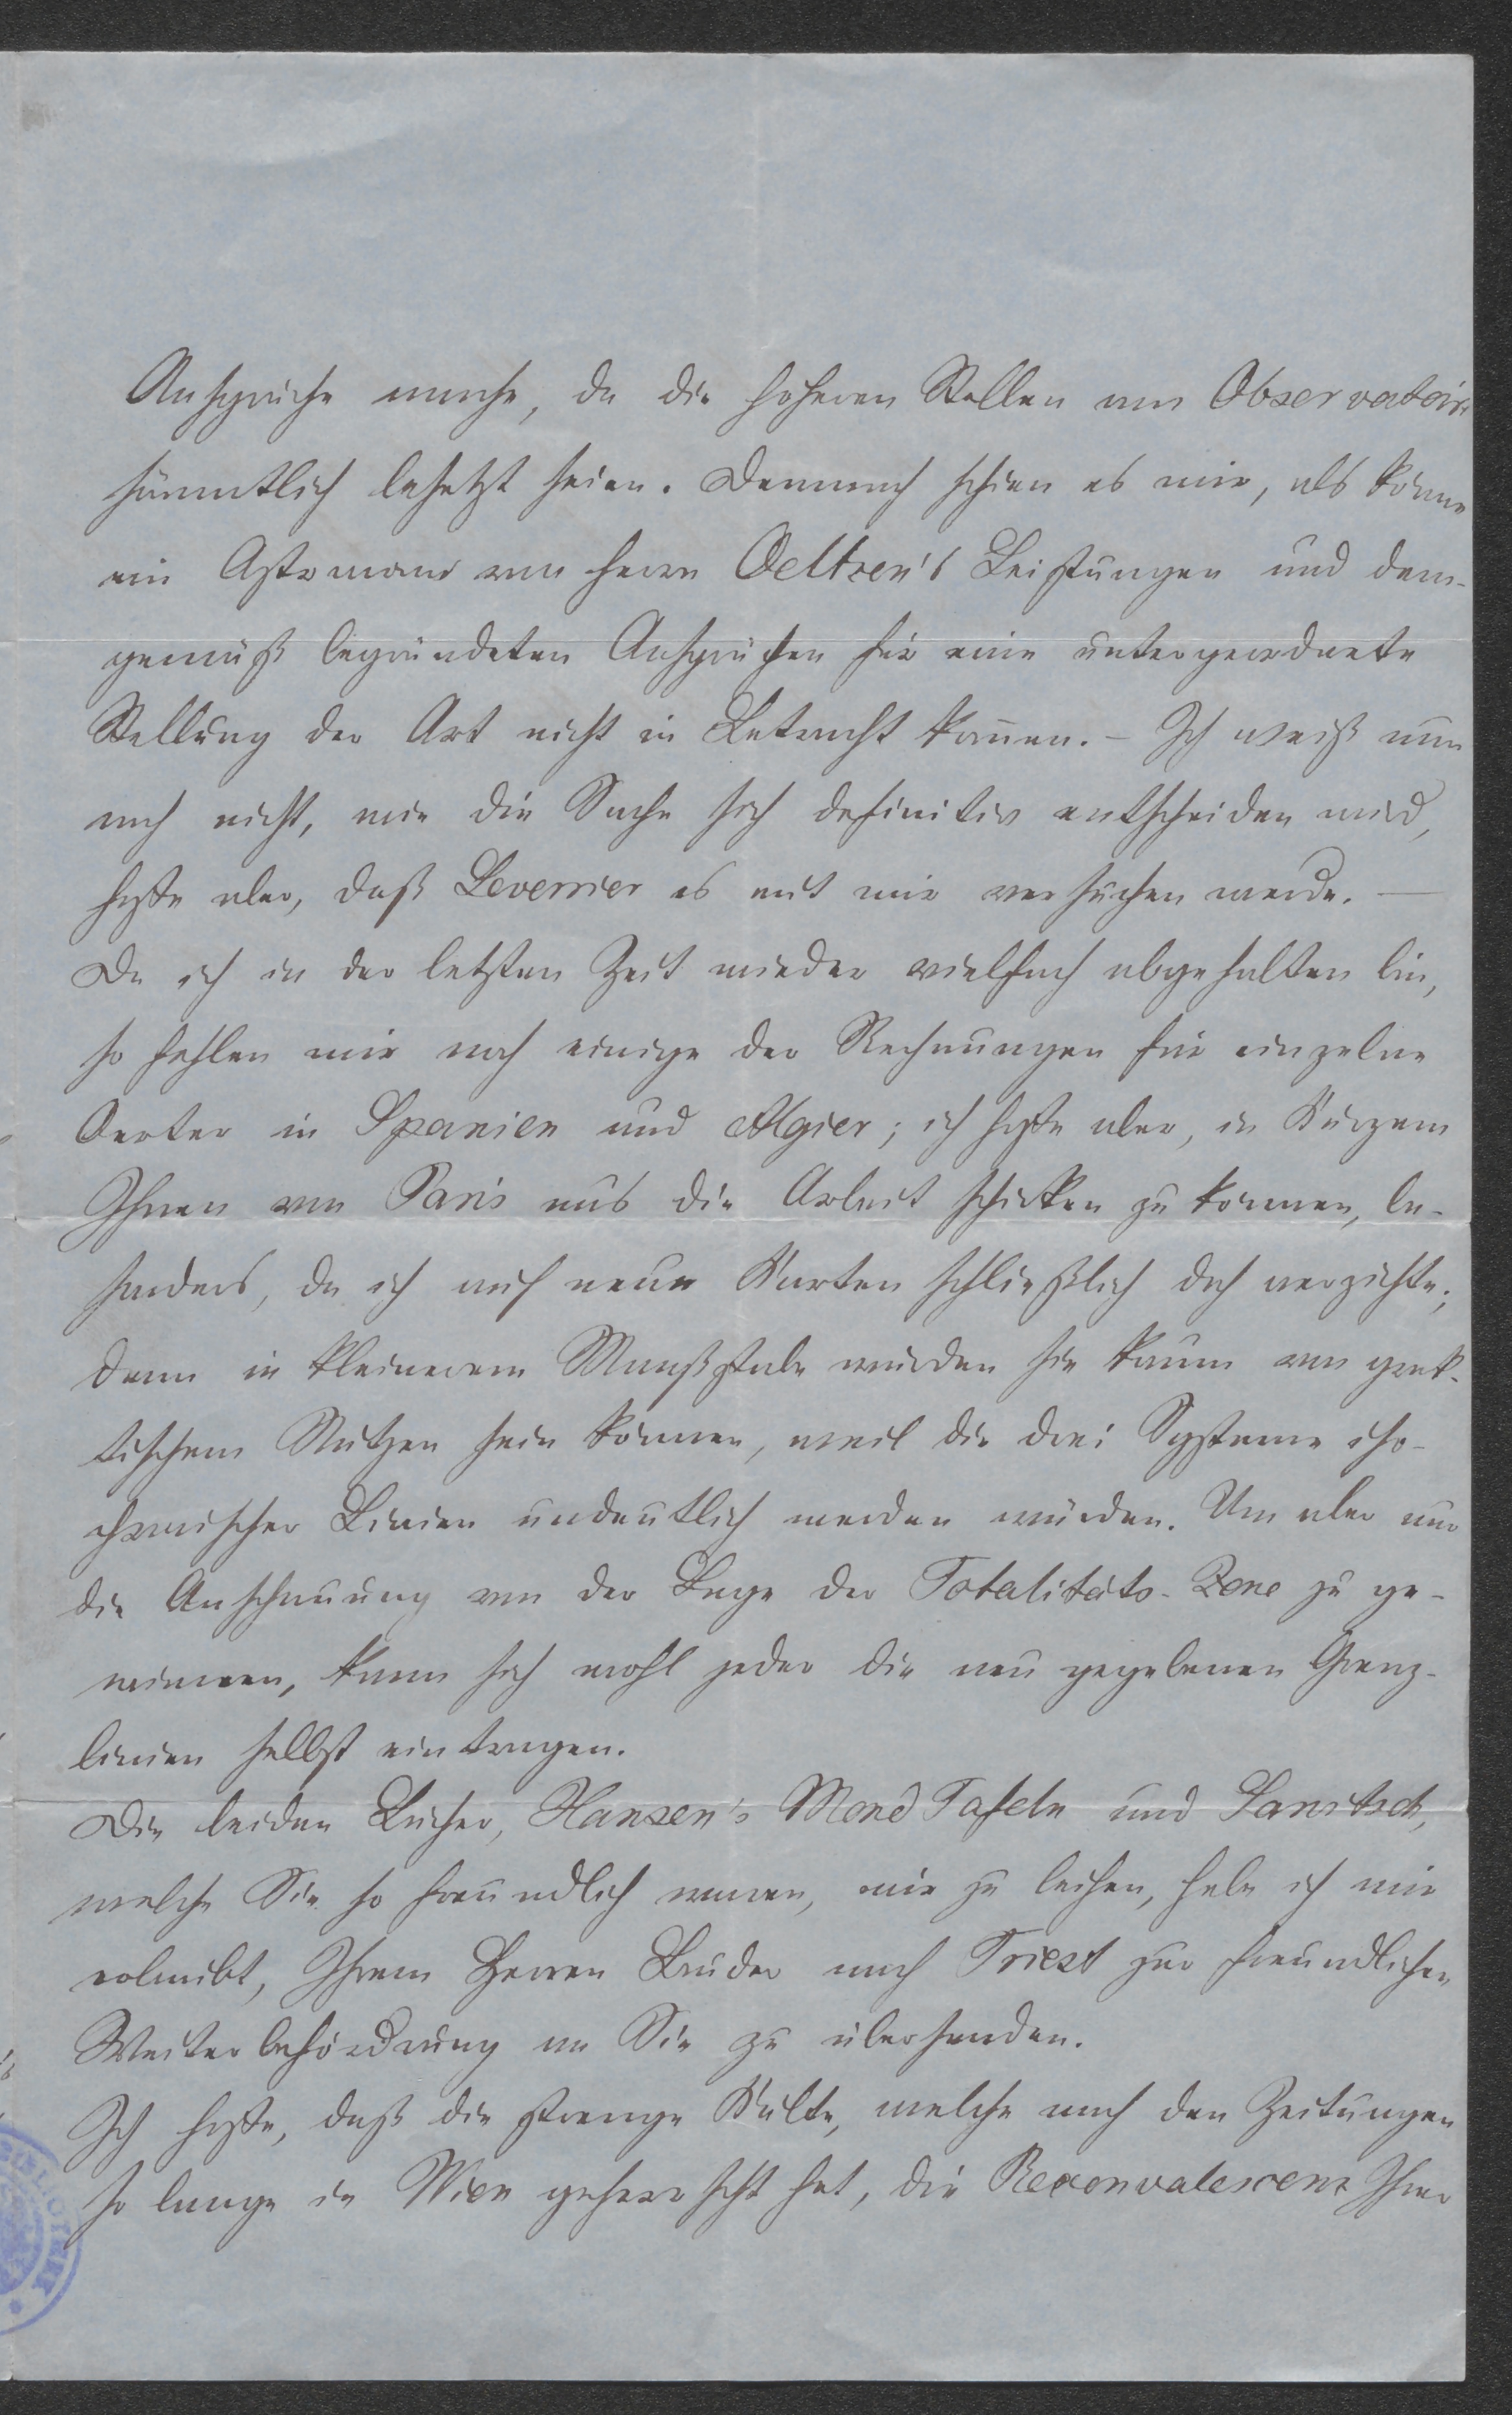 Ansprüche mache, da die höheren Stellen am Observatoire
sämmtlich besetzt seien. Demnach schien es mir, als könne
ein Astronom von Herrn Oeltzen's Leistungen und dem-
gemäß begründeten Ansprüchen für eine untergeordnete
Stellung der Art nicht in Betracht kom̅en. – Ich weiß nun
noch nicht, wie die Sache sich definitiv entscheiden wird,
hoffe aber, daß Leverrier es mit mir versuchen werde. —
Da ich in der letzten Zeit wieder vielfach abgehalten bin,
so fehlen mir noch einige der Rechnungen für einzelne
Oerter in Spanien und Algier; ich hoffe aber, in Kurzem
Ihnen von Paris aus die Arbeit schicken zu können, be-
sonders, da ich auf neue Karten schließlich doch verzichte;
denn in kleinerem Maaßstabe würden sie kaum von prak-
tischem Nutzen sein können, weil die drei Systeme iso-
chronischer Linien undeutlich werden würden. Um aber nur
die Anschauung von der Lage der Totalitäts-Zone zu ge-
winnen, kann sich wohl jeder die neu gegebenen Grenz-
linien selbst eintragen.
Die beiden Bücher, Hansen's Mond Tafeln und
welche Sie so freundlich waren, mir zu leihen, habe ich mir
erlaubt, Ihrem Herren Bruder nach Triest zur freundlichen
Weiterbeförderung an Sie zu übersenden.
Ich hoffe, daß die strenge Kälte, welche nach den Zeitungen
so lange in Wien geherrscht hat, die Reconvalescenz Ihrer